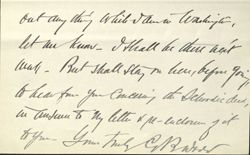 out any thing while I am in Washington,
let me know - I shall be there next
week - But shall stay on here, before going
to hear from you concerning the
in answer to my letter & re-enclosing of it
to you. Yours truly